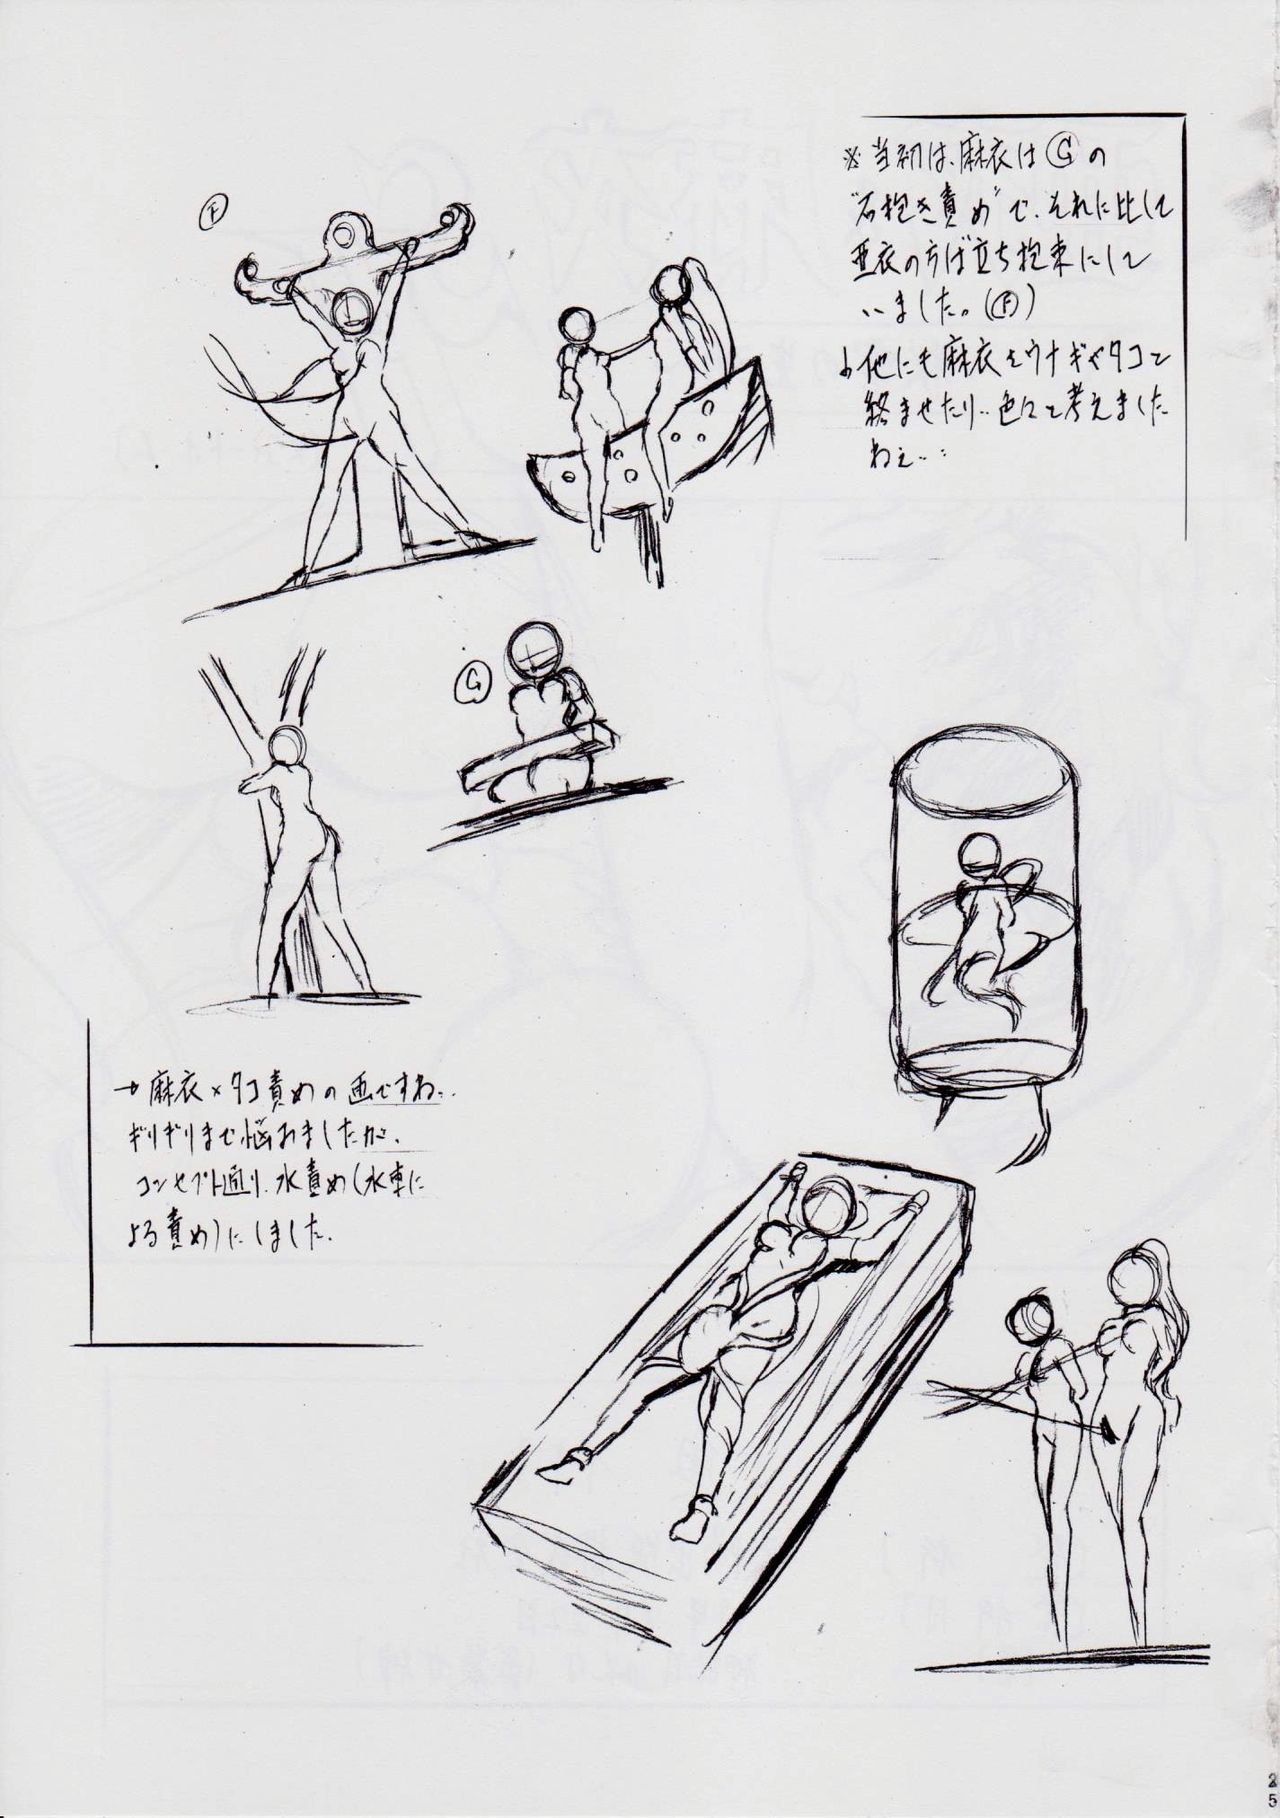 ※当初は、麻衣はⒼの
"石抱き責め"で、それに比して
亜衣の方は立ち拘束にして
いました。(Ⓕ)
↓他にも麻衣をウナギやタコと
絡ませたり‥色々と考えました
ねぇ‥:
Ⓕ
Ⓖ
→麻衣×タコ責めの画ですね‥
ギリギリまで悩みましたが、
コンセプト通り、水責め(水車に
よる責め)にしました。
25